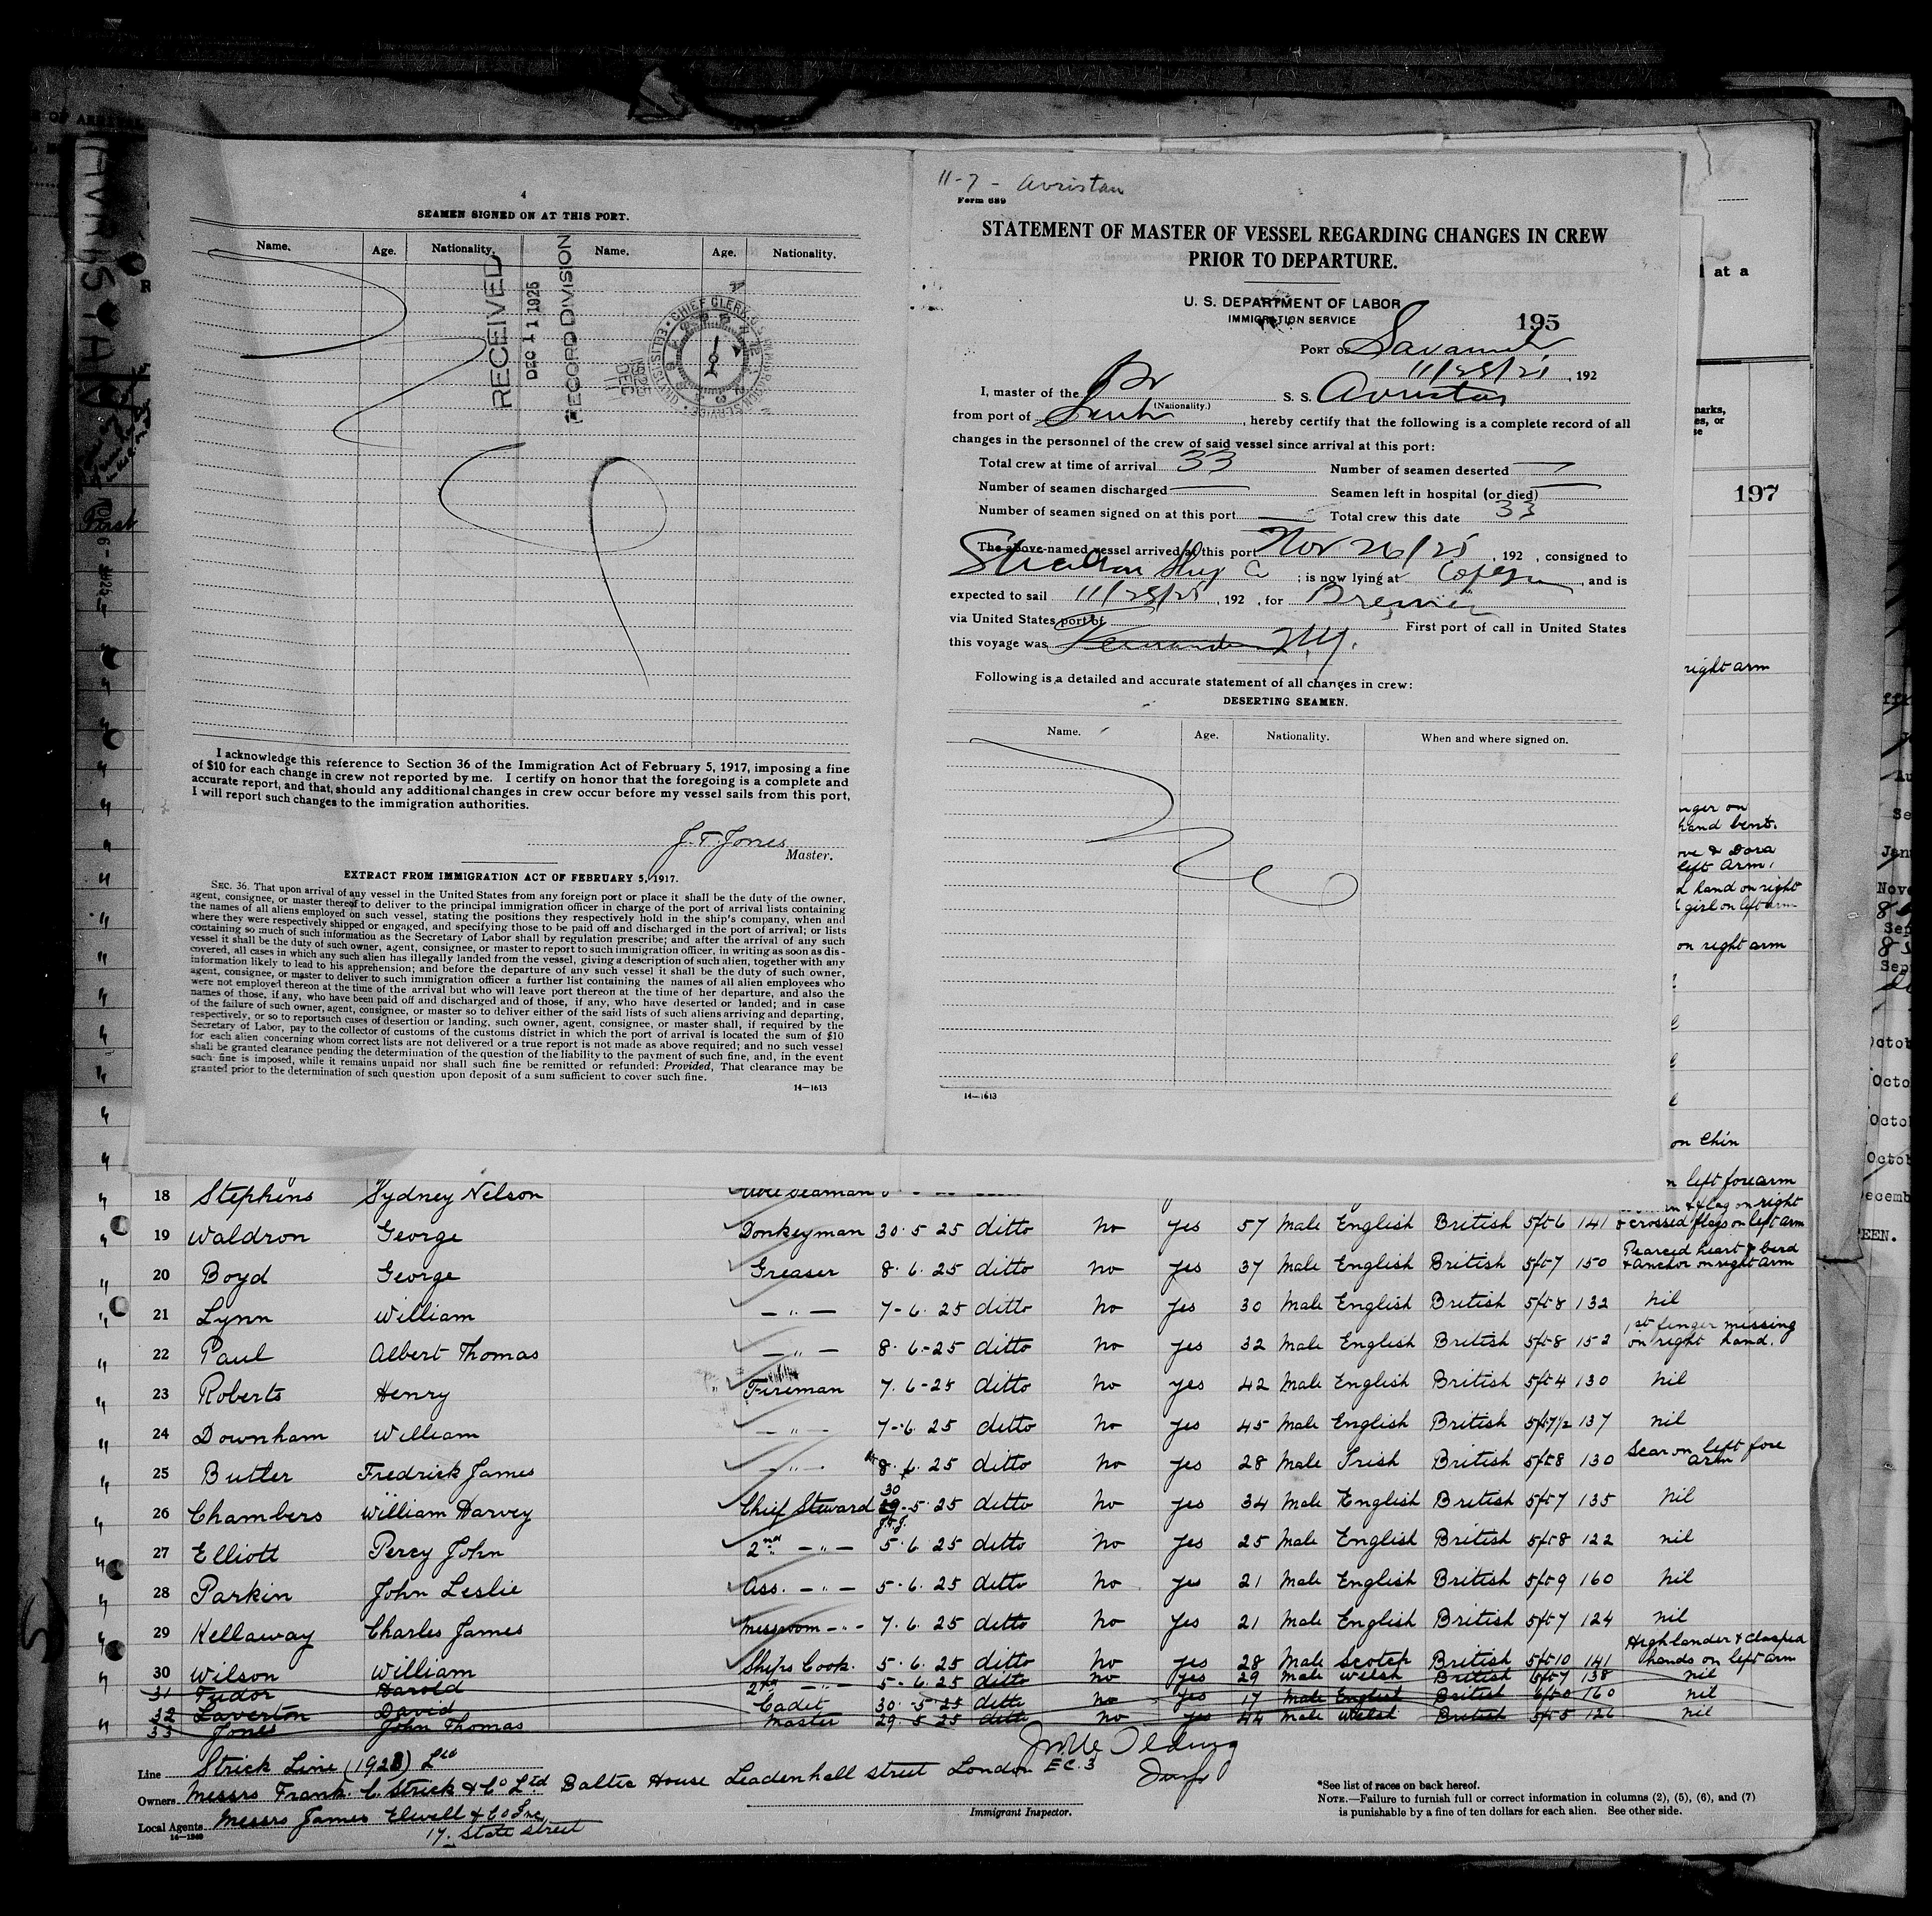 4
SEAMEN SIGNED ON AT THIS PORT.
Name. Age. Nationality. Name. Age. Nationality.
RECEIVED
DEC 11 1925
RECORD DIVISION
I acknowledge this reference to Section 36 of the Immigration Act of February 5, 1917, imposing a fine
of $10 for each change in crew not reported by me. I certify on honor that the foregoing is a complete and
accurate report, and that, should any additional changes in crew occur before my vessel sails from this port,
I will report such changes to the immigration authorities.
J. T. Jones
Master.
EXTRACT FROM IMMIGRATION ACT OF FEBRUARY 5, 1917.
SEC. 36. That upon arrival of any vessel in the United States from any foreign port or place it shall be the duty of the owner,
agent, consignee, or master thereof to deliver to the principal immigration officer in charge of the port of arrival lists containing
the names of all aliens employed on such vessel, stating the positions they respectively hold in the ship's company, when and
where they were respectively shipped or engaged, and specifying those to be paid off and discharged in the port of arrival; or lists
containing so much of such information as the Secretary of Labor shall by regulation prescribe; and after the arrival of any such
vessel it shall be the duty of such owner, agent, consignee, or master to report to such immigration officer, in writing as soon as dis-
covered, all cases in which any such alien has illegally landed from the vessel, giving a description of such alien, together with any
information likely to lead to his apprehension; and before the departure of any such vessel it shall be the duty of such owner,
agent, consignee, or master to deliver to such immigration officer a further list containing the names of all alien employees who
were not employed thereon at the time of the arrival but who will leave port thereon at the time of her departure, and also the
names of those, if any, who have been paid off and discharged and of those, if any, who have deserted or landed; and in case
of the failure of such owner, agent, consignee, or master so to deliver either of the said lists of such aliens arriving and departing,
respectively, or so to report such cases of desertion or landing, such owner, agent, consignee, or master shall, if required by the
Secretary of Labor, pay to the collector of customs of the customs district in which the port of arrival is located the sum of $10
for each alien concerning whom correct lists are not delivered or a true report is not made as above required; and no such vessel
shall be granted clearance pending the determination of the question of the liability to the payment of such fine, and, in the event
such fine is imposed, while it remains unpaid nor shall such fine be remitted or refunded: Provided, That clearance may be
granted prior to the determination of such question upon deposit of a sum sufficient to cover such fine.
14—1613
11-7 - Avristan
Form 689
STATEMENT OF MASTER OF VESSEL REGARDING CHANGES IN CREW
PRIOR TO DEPARTURE.
U. S. DEPARTMENT OF LABOR
IMMIGRATION SERVICE
195
PORT OF Savannah
11/28/25, 192
I, master of the Br S. S. Avristan
(Nationality.)
from port of , hereby certify that the following is a complete record of all
changes in the personnel of the crew of said vessel since arrival at this port:
Total crew at time of arrival 33 Number of seamen deserted
Number of seamen discharged Seamen left in hospital (or died)
Number of seamen signed on at this port Total crew this date 33
The above-named vessel arrived at this port Nov 26/25, 192 , consigned to
Strachan Ship Co ; is now lying at , and is
expected to sail 11/28/25, 192 , for Bremen
via United States port of First port of call in United States
this voyage was N.Y.
Following is a detailed and accurate statement of all changes in crew:
DESERTING SEAMEN.
Name. Age. Nationality. When and where signed on.
14—1613
at a
197
right arm
hand bent.
Dora
left Arm,
hand on right
girl on left arm
on right arm
on Chin
left forearm
18 Stephens Sydney Nelson
& flag on right
19 Waldron George Donkeyman 30. 5 25 ditto No yes 57 Male English British 5ft 6 141 & crossed flags on left arm
20 Boyd George Greaser 8. 6. 25 ditto No yes 37 Male English British 5ft 7 150 Pearced heart & bird & anchor on right arm
21 Lynn William — " — 7-6. 25 ditto No yes 30 Male English British 5ft 8 132 nil
22 Paul Albert Thomas — " — 8. 6.-25 ditto No yes 32 Male English British 5ft 8 152 1st finger missing on right hand.
23 Roberts Henry Fireman 7. 6-25 ditto No yes 42 Male English British 5ft 4 130 nil
24 Downham William — " — 7-6. 25 ditto No yes 45 Male English British 5ft 7 1/2 137 nil
25 Butler Fredrick James — " — 8. 6. 25 ditto No yes 28 Male Irish British 5ft 8 130 Scar on left fore arm
26 Chambers William Harvey Chief Steward 30 29-5. 25 ditto No yes 34 Male English British 5ft 7 135 nil
27 Elliott Percy John 2nd — " — 5. 6. 25 ditto No yes 25 Male English British 5ft 8 122 nil
28 Parkin John Leslie Ass. — " — 5-6. 25 ditto No yes 21 Male English British 5ft 9 160 nil
29 Kellaway Charles James Messroom — " — 7. 6. 25 ditto No yes 21 Male English British 5ft 7 124 nil
30 Wilson William Ships Cook. 5. 6. 25 ditto No yes 28 Male Scotch British 5ft 10 141 Highlander & clasped hands on left arm
31 Tudor Harold 2nd — " — 5-6. 25 ditto No yes 29 Male Welsh British 5ft 7 138 nil
32 Laverton David Cadet 30. 5 25 ditto No yes 17 Male English British 6ft 0 160 nil
33 Jones John Thomas Master 29. 5 25 ditto No yes 44 Male Welsh British 5ft 5 126 nil
Line Strick Line (1923) Ltd
Owners Messrs Frank C. Strick & Co Ltd Baltic House Leadenhall street London E C. 3
Local Agents Messrs James Elwell & Co Inc
17. State street
Immigrant Inspector.
*See list of races on back hereof.
NOTE.—Failure to furnish full or correct information in columns (2), (5), (6), and (7)
is punishable by a fine of ten dollars for each alien. See other side.